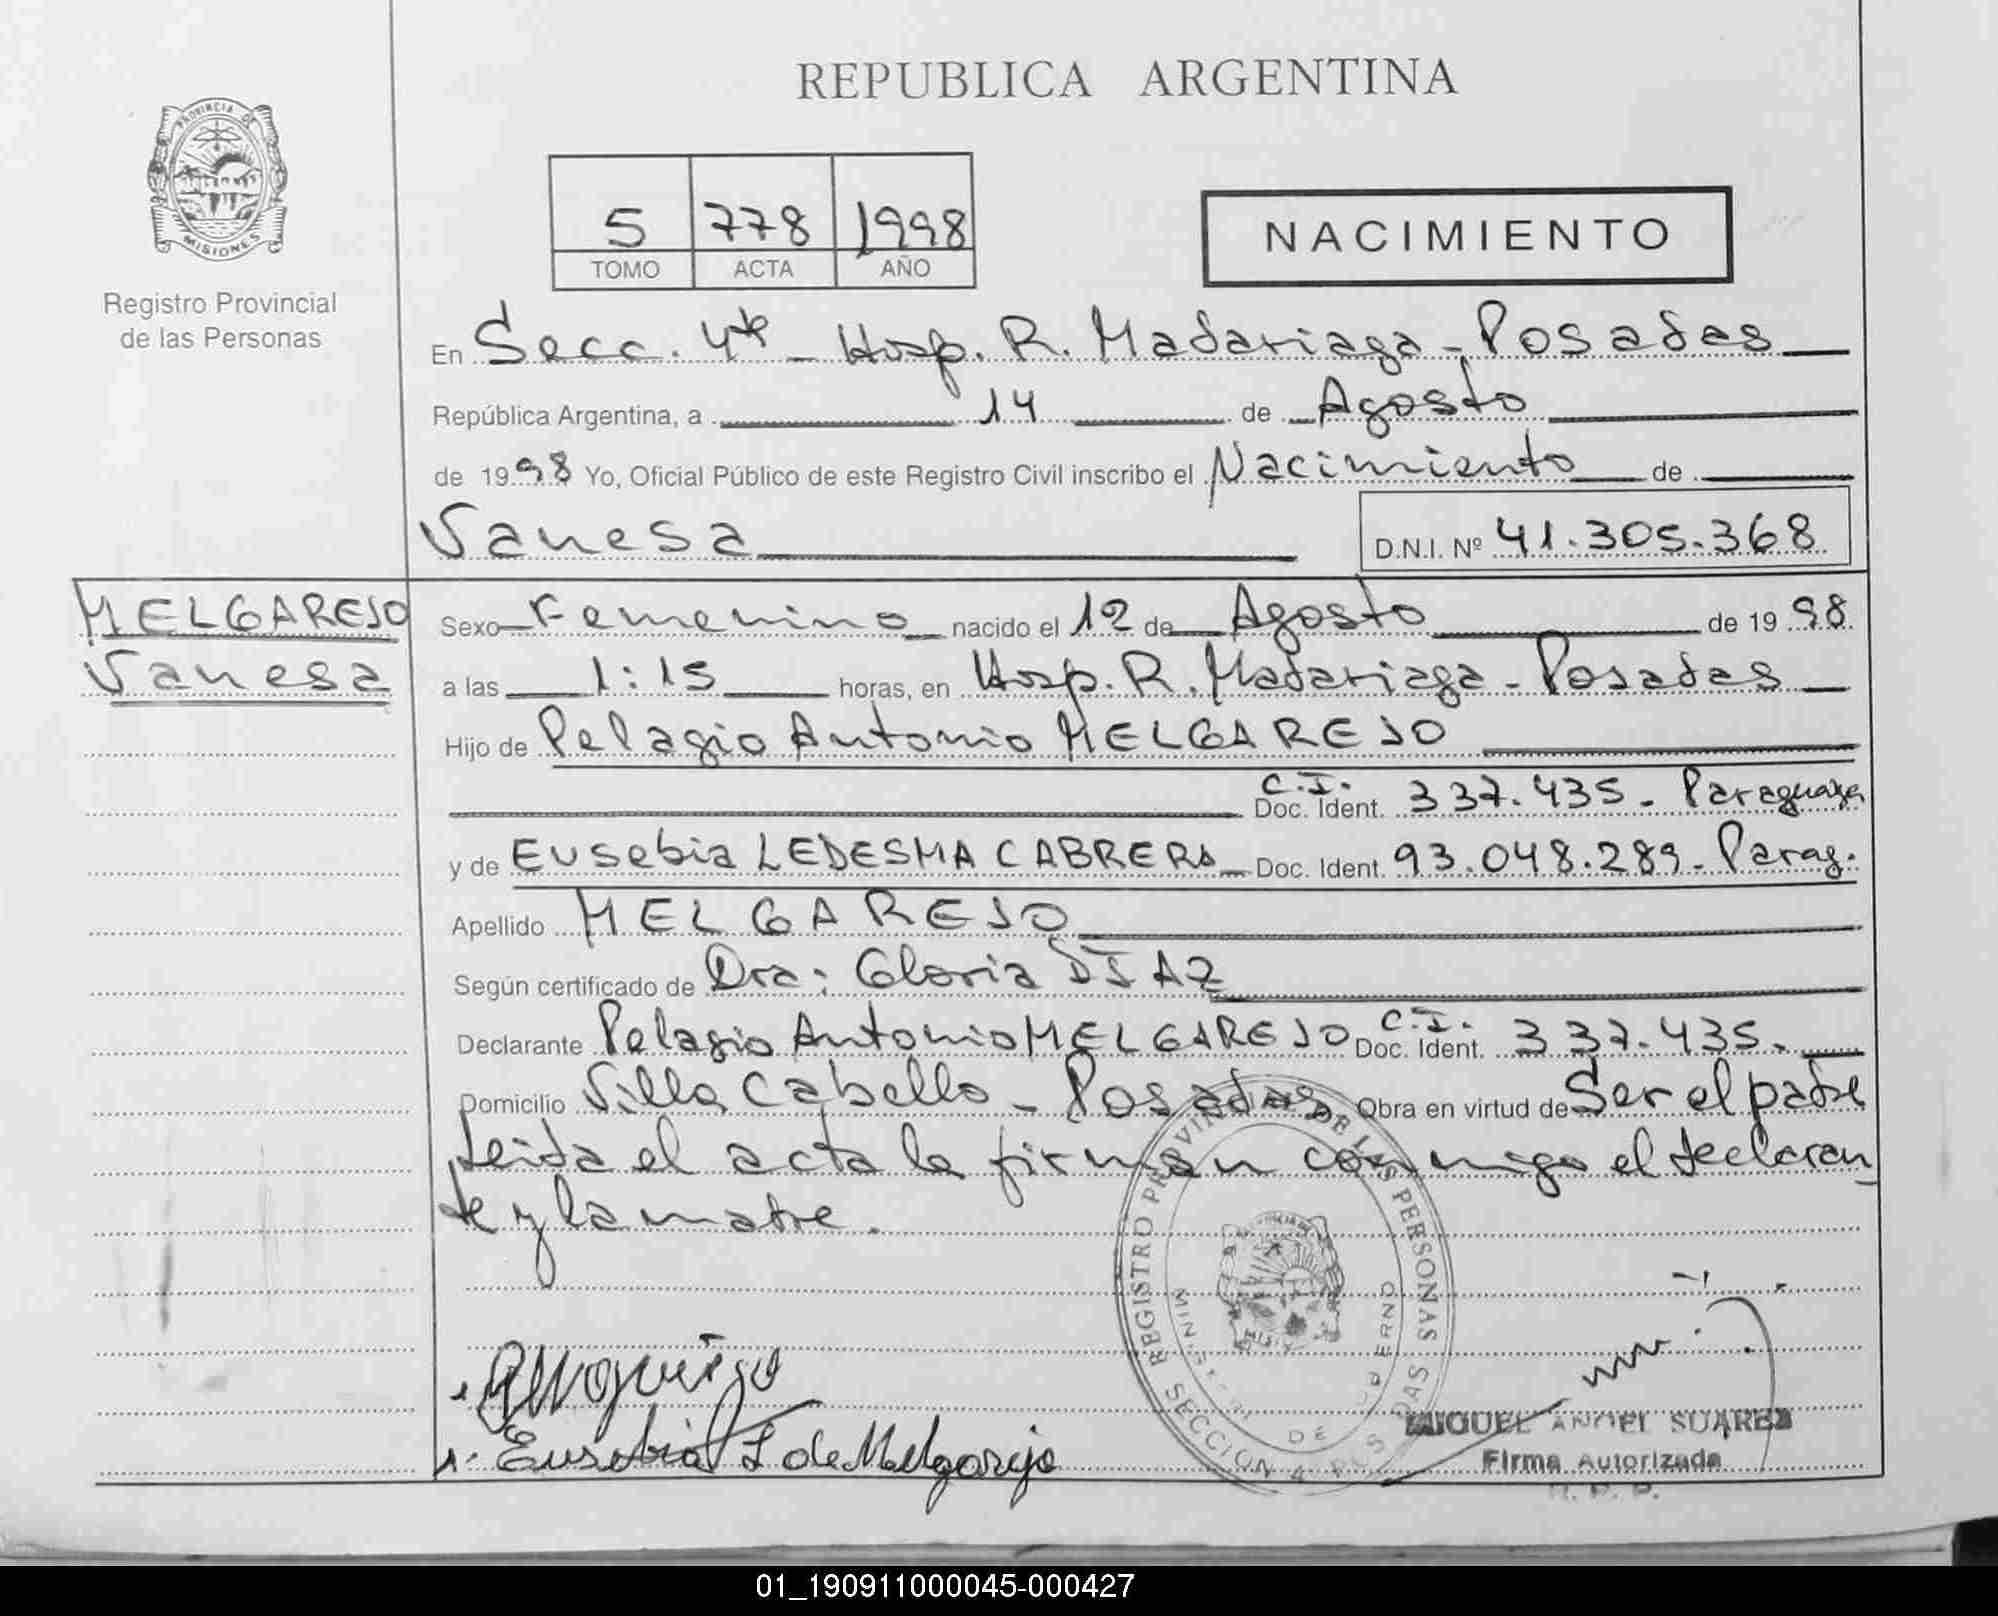 REPUBLICA ARGENTINA
PROVINCIA DE
MISIONES
Registro Provincial
de las Personas
5 778 1998
TOMO ACTA AÑO
NACIMIENTO
En Secc. 4ta - Hosp. R. Madariaga - Posadas
República Argentina, a 14 de Agosto
de 1998 Yo, Oficial Público de este Registro Civil inscribo el Nacimiento de
Vanesa
D.N.I. Nº 41.305.368
MELGAREJO
Vanesa
Sexo Femenino nacido el 12 de Agosto de 1998
a las 1:15 horas, en Hosp. R. Madariaga - Posadas
Hijo de Pelagio Antonio MELGAREJO
C.I.
Doc. Ident. 337.435 - Paraguaya
y de Eusebia LEDESMA CABRERA Doc. Ident. 93.048.289 - Parag.
Apellido MELGAREJO
Según certificado de Dra: Gloria DIAZ
Declarante Pelagio Antonio MELGAREJO C.I. Doc. Ident. 337.435.
Domicilio Villa Cabello - Posadas Obra en virtud de Ser el padre
Leida el acta la firman conmigo el declaran
te y la madre.
REGISTRO PROVINCIAL DE LAS PERSONAS
MINISTERIO DE GOBIERNO
SECCION 4 POSADAS
Eusebia L de Melgarejo
MIGUEL ANGEL SUAREZ
Firma Autorizada
R. P. P.
01_190911000045-000427